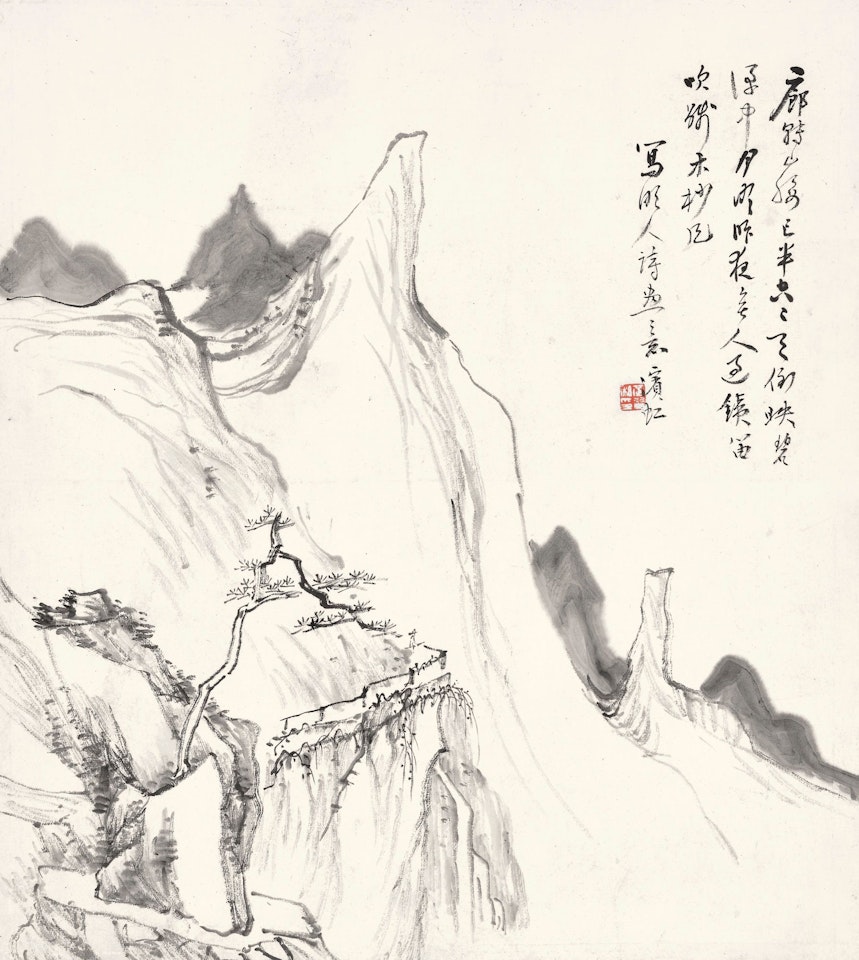 廊轉山腰已半空〻天倒映碧
潭中月明昨夜無人過鐵笛
吹殘木杪風
寫明人詩畫意 濱虹